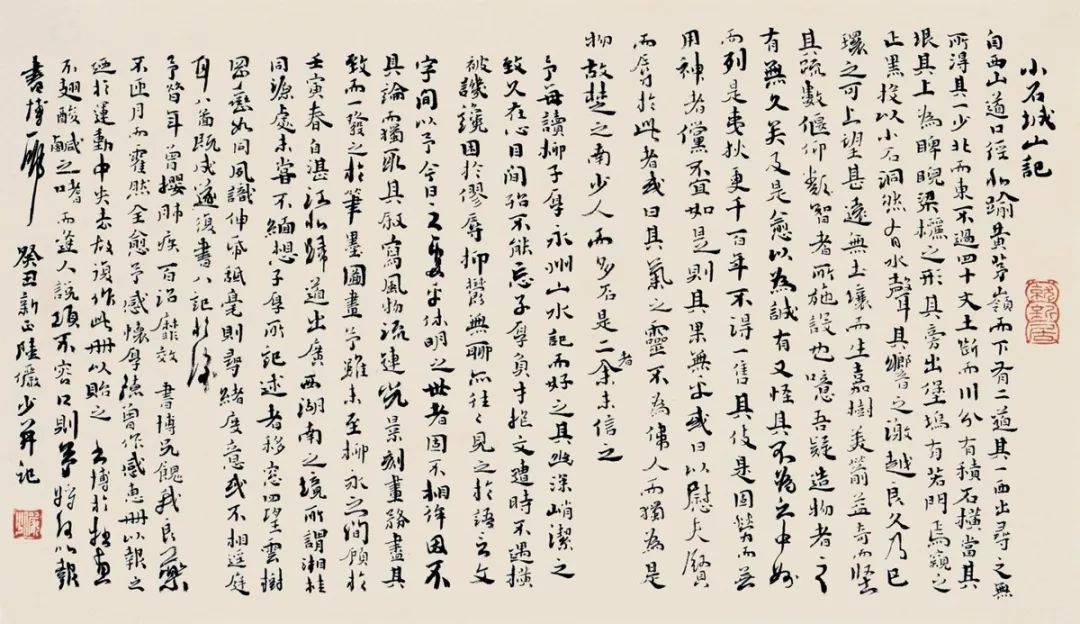 小石城山記
自西山道口徑北踰黃茅嶺而下有二道其一西出尋之無
所得其一少北而東不過四十丈土斷而川分有積石橫當其
垠其上為睥睨梁欐之形其旁出堡塢有若門焉窺之
正黑投以小石洞然有水聲其響之激越良久乃已
環之可上望甚遠無土壤而生嘉樹美箭益奇而堅
其疏數偃仰類智者所施設也噫吾疑造物者之
有無久矣及是愈以為誠有又怪其不為之中州
而列是夷狄更千百年不得一售其伎是固勞而無
用神者儻不宜如是則其果無乎或曰以慰夫賢
而辱於此者或曰其氣之靈不為偉人而獨為是
物故楚之南少人而多石是二者余未信之
予每讀柳子厚永州山水記而好之其幽深峭潔之
致久在心目間殆不能忘子厚負才摛文遭時不遇橫
被譏讒困於僇辱抑鬱無聊亦往々見之於語言文
字間以予今日之處乎休明之世者固不相侔因不
具論而獨取其敘寫風物流連光景刻畫略盡其
致而一發之於筆墨圖畫予雖未至柳永之間顧於
壬寅春自湛江北歸道出廣西湖南之境所謂湘桂
同源處未嘗不緬想子厚所記述者移窓四望雲樹
巒如同夙識伸紙舐毫則尋緒度意或不相逕庭
耳八圖既成遂復書八記於後
予昔年曾攖肺疾百治靡效書博兄餽我良藥
不匝月而霍然全愈予感懷厚德曾作感惠冊以報之
經於運動中失去故復作此冊以貽之書博於拙畫
不翅酸鹹之嗜而逢人說項不容口則予將何以報
書博一哂
癸丑新正陸儼少并記